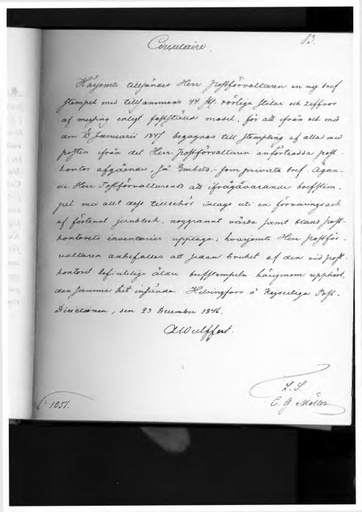 13.
Circulaire.
Härjemte tillsändes Herr Postförvaltaren en ny bref
stempel med tillhammans 44 st. rörliga stilar och ziffror
af messing enligt fastställd modell, för att ifrån och med
den 1 Januarii 1847 begagnas till stempling af alla med
posten ifrån det Herr Postförvaltaren anförtrodda post
kontor afgående, så Embets, som privata bref. Ägan
de Herr Postförvaltaren att ifrågavarande brefstem
pel med allt dess tillbehör inlagt uti en förvaringsask
af förtent jernbleck, noggrannt vårda samt bland post
kontorets inventarier upptaga; hvarjemte Herr Postför
valtaren anbefalles att sedan bruket af den vid post
kontoret befintliga äldre brefstempeln härigenom upphört,
den samma hit insända. Helsingfors å Kejserliga Post-
Directionen, den 23 December 1846.
A Wulffert.
L. S.
C. G. Möller
№ 1051.